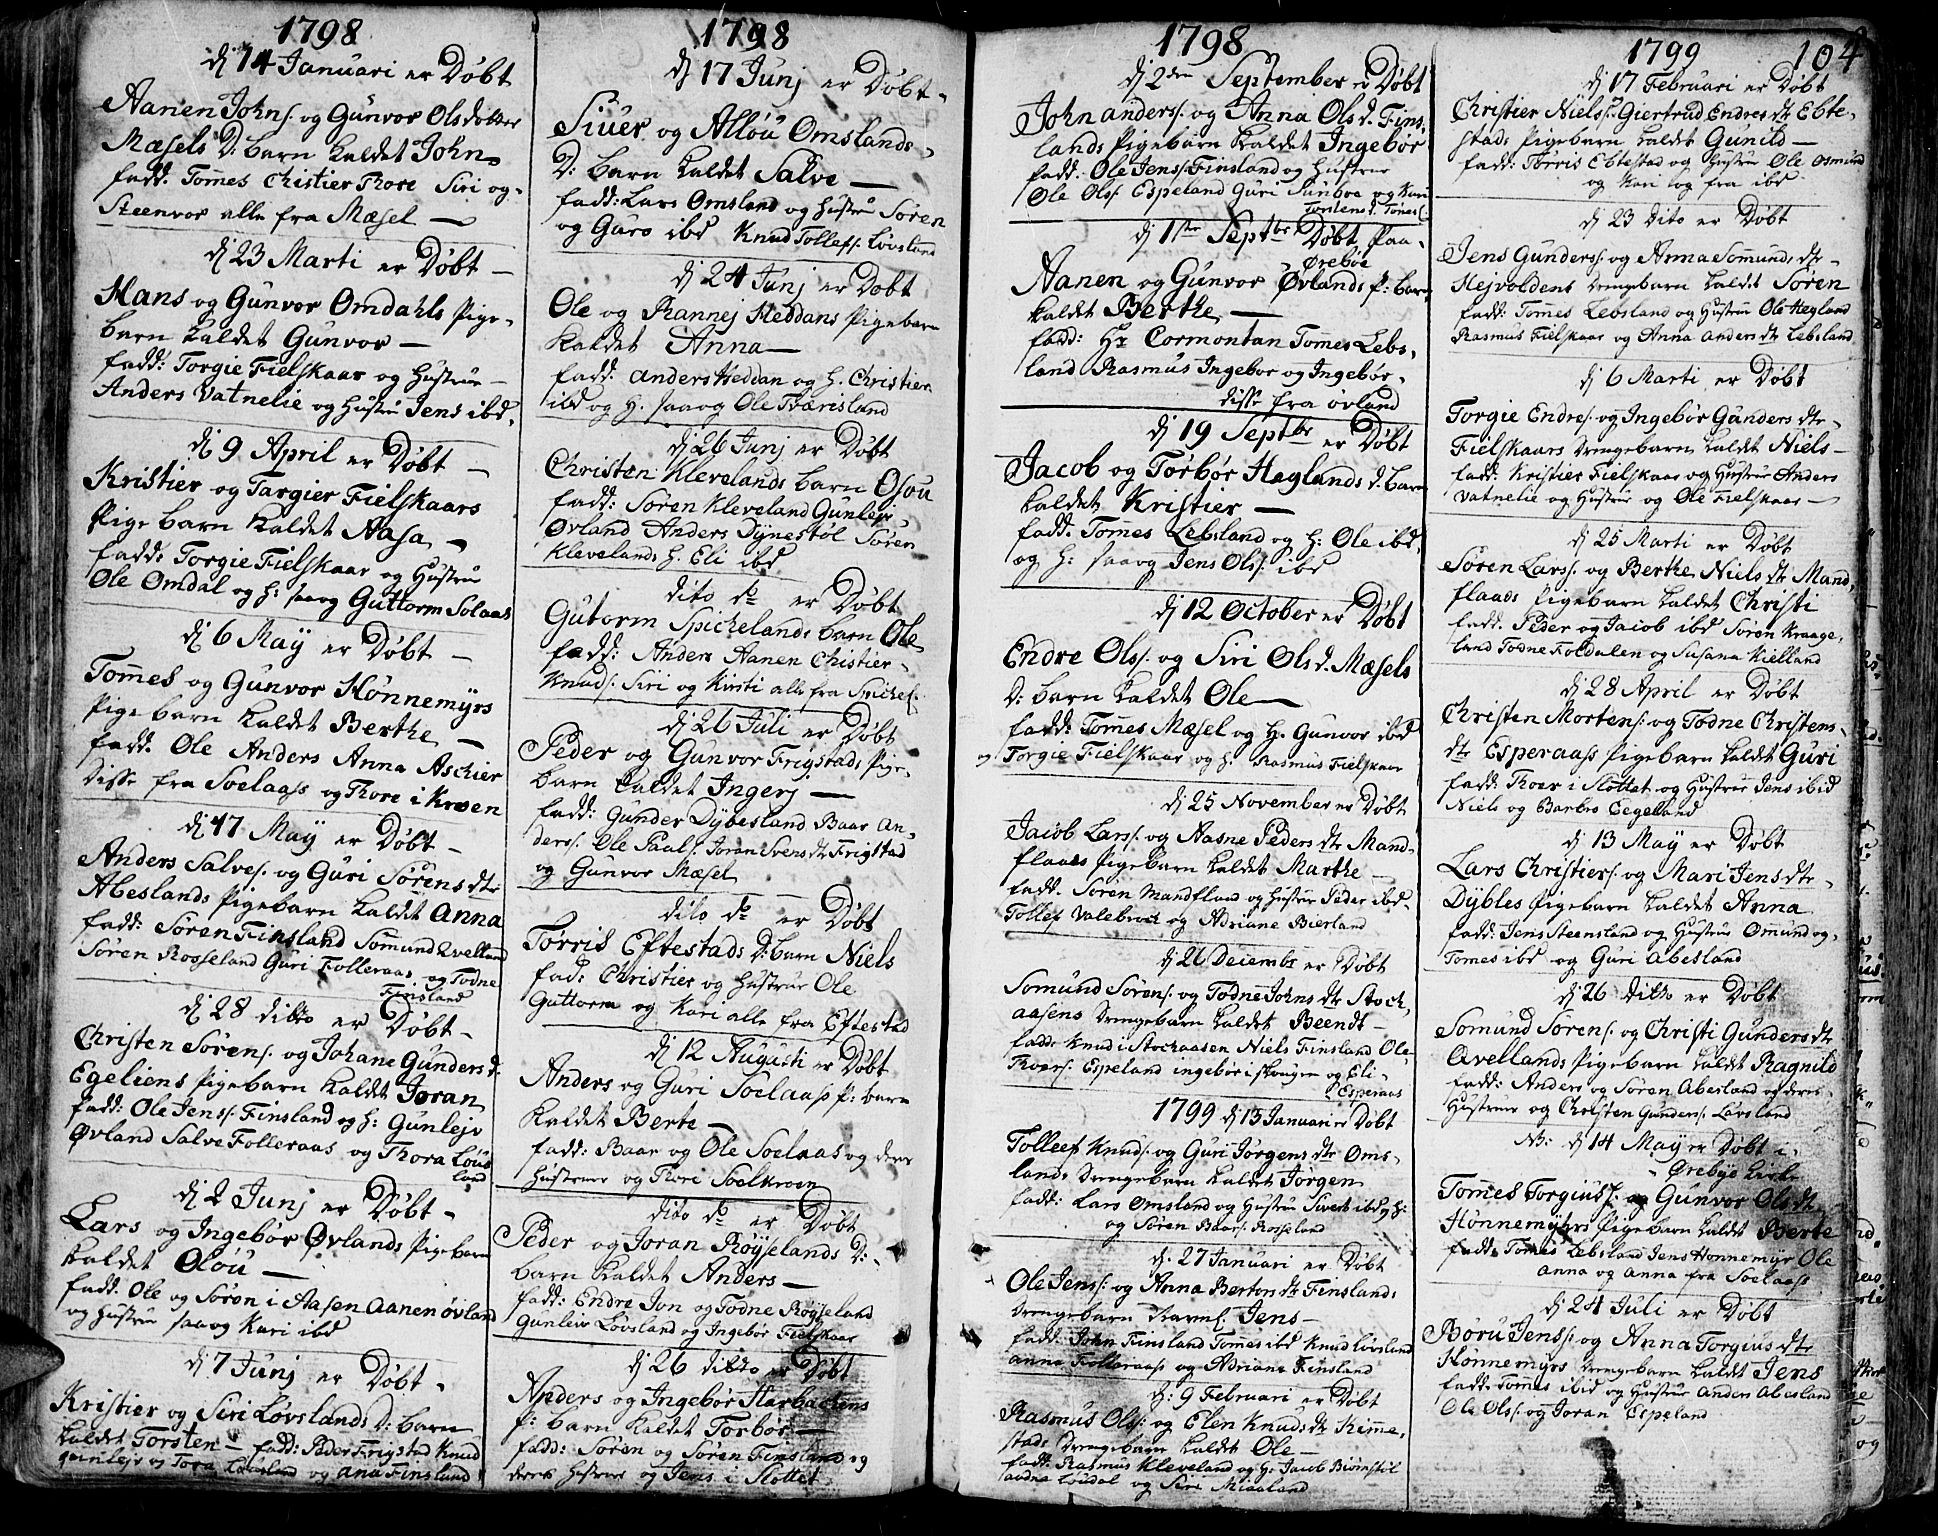 1798
dj 14 Januari er Døbt
Aanen Johns. og Gunvor Olsdotter
Mæsels D: barn kaldet John
fadd: Tom̄es Christier Thore Siri og
Steenvor alle fra Mæsel —
dj 23 Marti er Døbt —
Hans og Gunvor Omdahls Pige-
barn kaldet Gunvor —
fadd: Torgie Fielskaar og Hustrue —
Anders Vatnelie og Hustru Jens ibd.
dj 9 April er Døbt —
Kristier og Targier Fielskaars
Pige barn kaldet Aasa —
fadd: Torgie Fielskaar og Hustru
Ole Omdal og h: saavog Guttorm Solaas
dj 6 Maÿ er Døbt —
Tom̄es og Gunvor Hønnemÿrs
Pige barn kaldet Berthe —
fadd. Ole Anders Anna Aschier
disse fra Soelaass og Thore i Kroen
dj 17 Maÿ er Døbt —
Anders Salves. og Guri Sørens dtr
Abeslands Pigebarn kaldet Anna
fadd: Søren Finsland Somund Qvelland
Søren Rosseland Guri Folleraas og Todne
Finsland
dj 28 ditto er Døbt —
Christen Sørens. og Johane Gunders d.
Egeliens Pigebarn kaldet Joran
fadd: Ole Jens. Finsland og h: Gunlejv
Øvland Salve Folleraas og Thora Løus
land
dj 2 Junj er Døbt —
Lars og Ingebør Øvlands Pigebarn
kaldet Oløu —
fadd. Ole og Søren i Aasen Aanen øvland
og Hustru saavog Kari ibd
dj 7 Junj er Døbt —
Kristier og Siri Løvslands D: barn
kaldet Torsten — fadd: Peder Frigstad Knud
gunlejv og Tora Løusland og Ana Finsland
1798
dj 17 Junj er Døbt —
Siuer og Alløu Omslands
D: barn kaldet Salve —
fadd: Lars Omsland og Hustru Søren
og Guro ibd Knud Tollefs. Løvsland
dj 24 Junj er Døbt
Ole og Rannej Heddans Pigebarn
kaldet Anna —
fadd: Anders Heddan og h. Christier
ibd og h. saavog Ole Tværisland
dj 26 Junj er Døbt
Christen Klevelands barn Osou
fadd: Søren Kleveland Gunlejv
Øvland Anders Dÿnestøl Søren
Klevelands h. Eli ibd
dito do er Døbt
Gutorm Spichelands barn Ole
fadd: Anders Aanen Christier
Knuds. Siri og Kirsti alle fra Spichel.
dj 26 Juli er Døbt
Peder og Gunvor Frigstads Pige-
barn kaldet Ingerj —
fadd: Gunder Dÿbesland Baar An-
ders. Ole Paals. Joran Svens dtr Frigstad
og Gunvor Mæsel
dito do er Døbt
Torris Eftestads D: barn Niels
fad: Christier og Hustrue Ole
Guttorm og Kari alle fra Eftestad
dj 12 Augusti er Døbt
Anders og Guri Soelaass P: barn
kaldet Berte —
fadd: Baar og Ole Soelaas og deres
Hustruer og Thori Soelkroen
dito do er Døbt
Peder og Joran Røÿselands D:
barn kaldet Anders —
fadd: Endre Jon og Todne Røÿseland
Gunleiv Løvsland og Ingebør Fielskaar
dj 26 ditto er Døbt
Anders og Ingebør Harbachens
P: barn kaldet Torbor —
fadd: Søren og Søren Finsland og
deres Hustruer og Jens i Slottet
1798
dj 2den September er Døbt
John anders. og Anna Ols d. Fins-
lands Pigebarn kaldet Ingebør
fadd: Ole Jens. Finsland og Hustrue
Ole Ols. Espeland Guri Sunboe og Kari
Tordens d. Tom̄es.
dj 1ste Septbr Døbt, Paa
Ørebøe
Aanen og Gunvor Øvlands P: barn
kaldet Berthe —
fadd: Hr Cormontan Tom̄es Lebs-
land Rasmus Ingebor og Ingebør
disse fra øvland
dj 19 Septbr er Døbt
Jacob og Torbør Haglands d. barn
kaldet Kristier —
fadd. Tom̄es Lebsland og h: Ole ibd
og h: saavog Jens Ols. ibd
dj 12 October er Døbt
Endre Ols. og Siri Ols d. Mæsels
D: barn kaldet Ole —
fadd: Tom̄es Mæsel og h. Gunvor ibd
og Torgie Fielskaar og h. Rasmus Fielskaar
dj 25 November er Døbt
Jacob Lars. og Aasne Peders dtr Mand-
flaaes Pigebarn kaldet Marthe —
fadd. Søren Mandfland og Hustru Peder ibd
Tollef Valebroet og Adriane Bierland
dj 26 Decembr er Døbt
Somund Sørens. og Todne Johns dtr Stoch-
aasens Drengebarn kaldet Beendt —
fadd: Knud i Stochaasen Niels Finsland Ole
Thoers. Espeland ingebør i skougen og Eli
Esperaas
1799 dj 13 Januari er Døbt
Tolleef Knuds. og Guri Jørgens dtr Oms-
lands Drengebarn kaldet Jørgen
fadd: Lars Omsland og Hustru Sivert ibd og h:
og Søren Baars. Rosseland
dj. 27 Januari er Døbt
Ole Jens. og Anna Bertors dtr Finslands
Drengebarn Navnl. Jens —
fadd: John Finsland Tomes ibd Knud Løvsland
anna Folleraass og Adriane Finsland
h: 9 Februari er Døbt
Rasmus Ols. og Elen Knuds dtr Kim̄e-
stads Drengebarn kaldet Ole —
fadd: Rasmus Kleveland og h: Jacob Biørnstil
Løudal og Siri Miaaland
1799
104
dj 17 Februari er Døbt
Christier Niels. Giertrud Endres dtr Ebte-
stads Pigebarn kaldet Gunild —
fadd: Torris Ebtestad og Hustru Ole Osmund
og Kari og fra ibd.
dj 23 Dito er Døbt
Jens Gunders. og Anna Som̄unds dtr
Hejvoldens Drengebarn kaldet Søren
fadd: Tom̄es Lebsland og Hustru Ole Hegland
Rasmus Fielskaar og Anna Anders dtr Lebsland
dj 6 Marti er Døbt
Torgie Endres. og Ingebør Gunders dtr
Fielskaars Drengebarn kaldet Niels —
fadd: Kristier Fielskaar og Hustrue Anders
Vatnelie og Hustrue og Ole Fielskaar —
dj 25 Marti er Døbt
Søren Lars. og Berthe Niels dtr Mand-
flaads Pigebarn kaldet Christi
fadd. Peder og Jacob ibd Søren Kraage-
land Todne Foldalen og Susana Kielland
dj 28 April er Døbt
Christen Mortens. og Todne Christens
dtr Esperaass Pigebarn kaldet Guri
fadd: Thoer i Slottet og Hustrue Jens ibid
Niels og Barbro Eegeland
dj 13 Maÿ er Døbt
Lars Christiers. og Mari Jens dtr
Dÿbles Pigebarn kaldet Anna
fadd: Jens Steensland og Hustrue Omund og
Tomes ibd og Guri Abesland
dj 26 ditto er Døbt
Somund Sørens. og Christi Gunders dtr
Qvellands Pigebarn kaldet Ragnild
fadd: Anders og Søren Abesland og deres
Hustruer og Christen Gunders. Løvsland
NB: dj 14 Maÿ er Døbt i
Ørebÿe kirke
Tom̄es Torgius. og Gunvor Ols dtr
Hønnemÿrs Pigebarn kaldet Berte
fadd: Tomes Lebsland Jens Hønnemÿr Ole
Anna og Anna fra Soelaass
dj 24 Juli er Døbt
Børu Jens. og Anna Torgius dtr
Hønnemÿrs Drengebarn kaldet Jens
fadd. Tom̄es ibid og Hustrue Anders Abesland
Ole Ols. og Joran Espeland